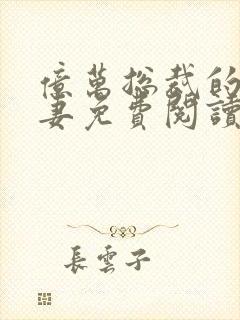 億萬總裁的
妻免費閱讀
長雲子